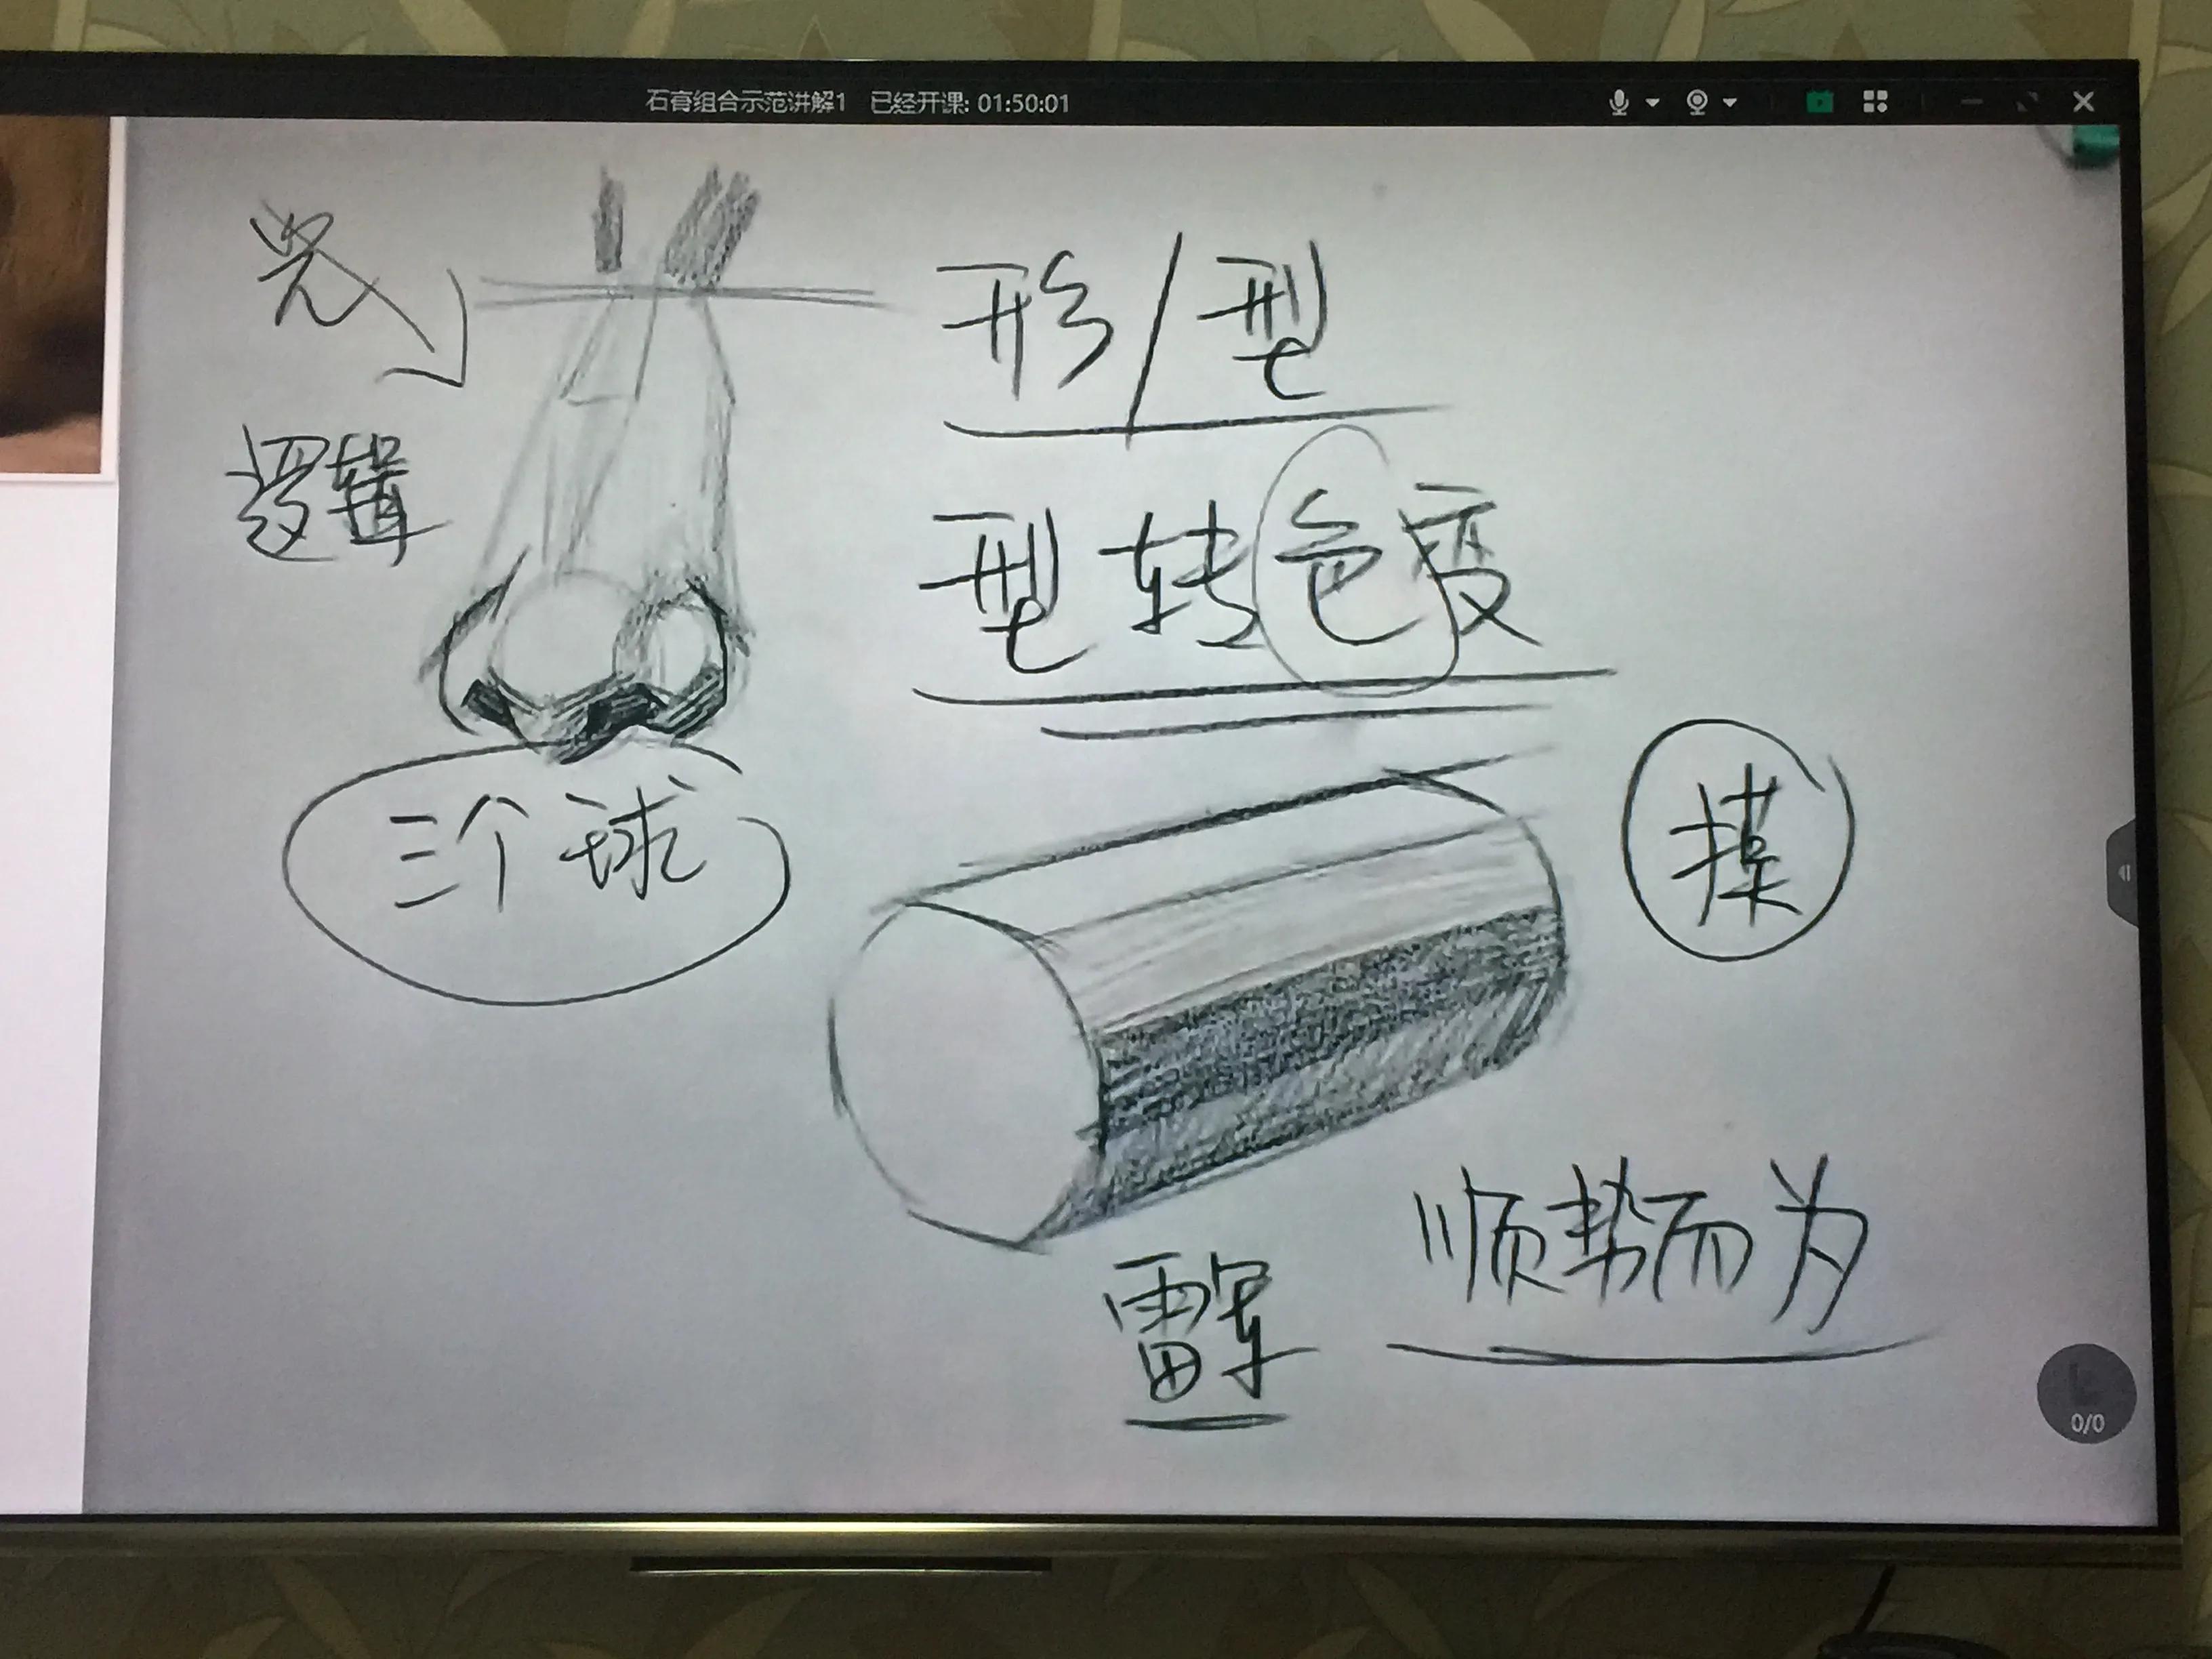 石膏组合示范讲解1 已经开课: 01:50:01
形/型
逻辑
型转色变
三个球
摸
顺势而为
0/0